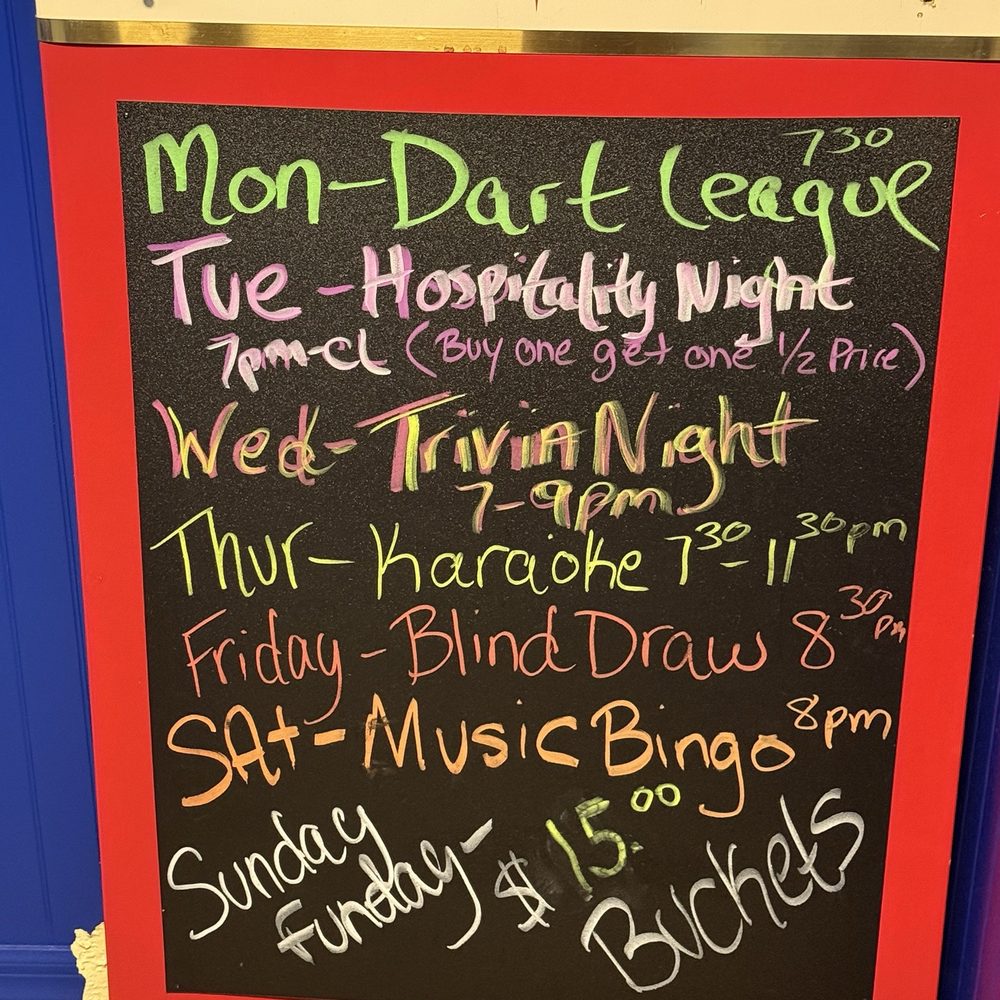 Mon-Dart League 730
Tue-Hospitality Night
7pm-cl (Buy one get one 1/2 Price)
Wed-Trivia Night
7-9pm
Thur-Karaoke 730-1130pm
Friday-Blind Draw 830pm
SAt-Music Bingo 8pm
Sunday
Funday- $15.00 Buckets